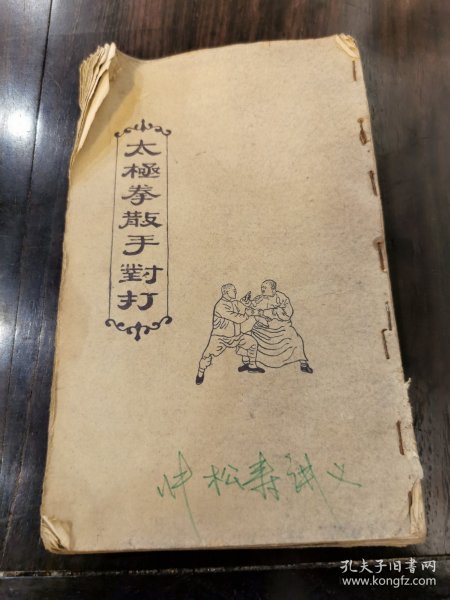 太極拳散手對打
松寿讲义
孔夫子旧书网
www.kongfz.com